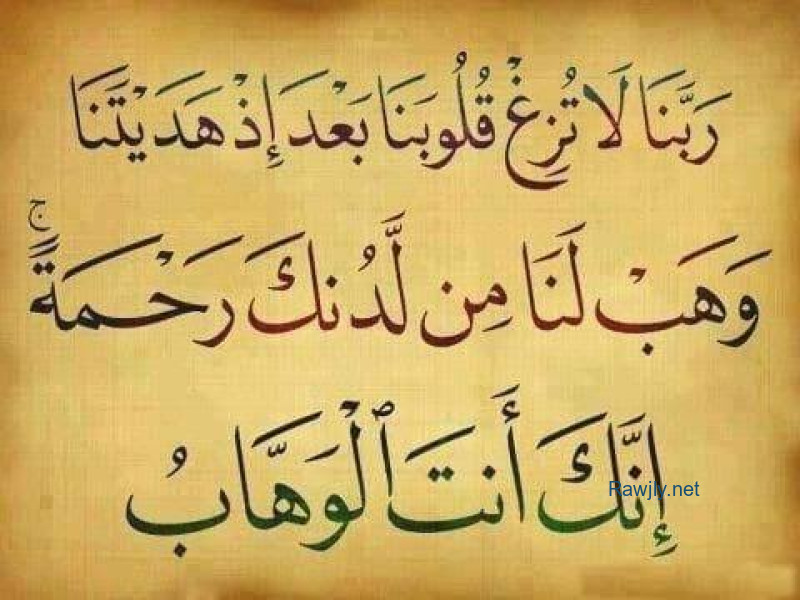 رَبَّنَا لَا تُزِغْ قُلُوبَنَا بَعْدَ إِذْ هَدَيْتَنَا
وَهَبْ لَنَا مِن لَّدُنكَ رَحْمَةً ۚ
إِنَّكَ أَنتَ ٱلْوَهَّابُ
Rawjly.net